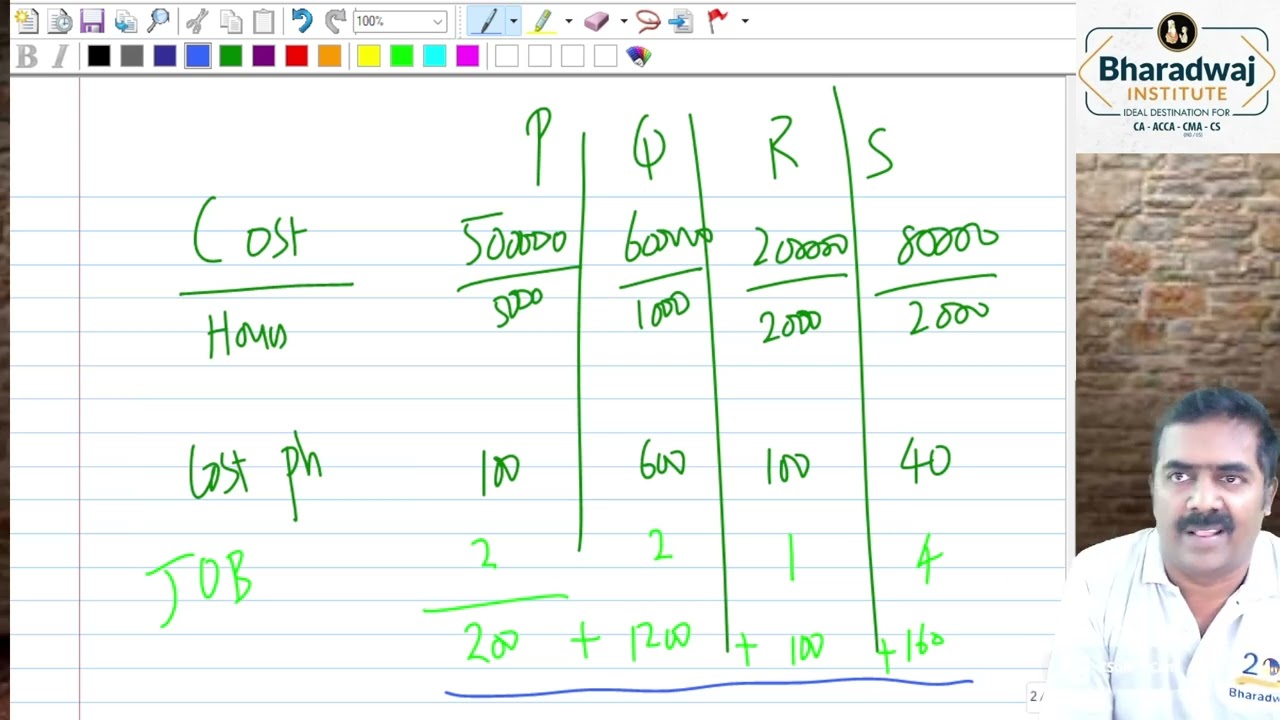 100%
B I
Bharadwaj
INSTITUTE
IDEAL DESTINATION FOR
CA - ACCA - CMA - CS
P Q R S
Cost 500000 600000 200000 80000
Hours 5000 1000 2000 2000
Cost ph 100 600 100 40
JOB 2 2 1 4
200 + 1200 + 100 + 160
2 /
Bharadw